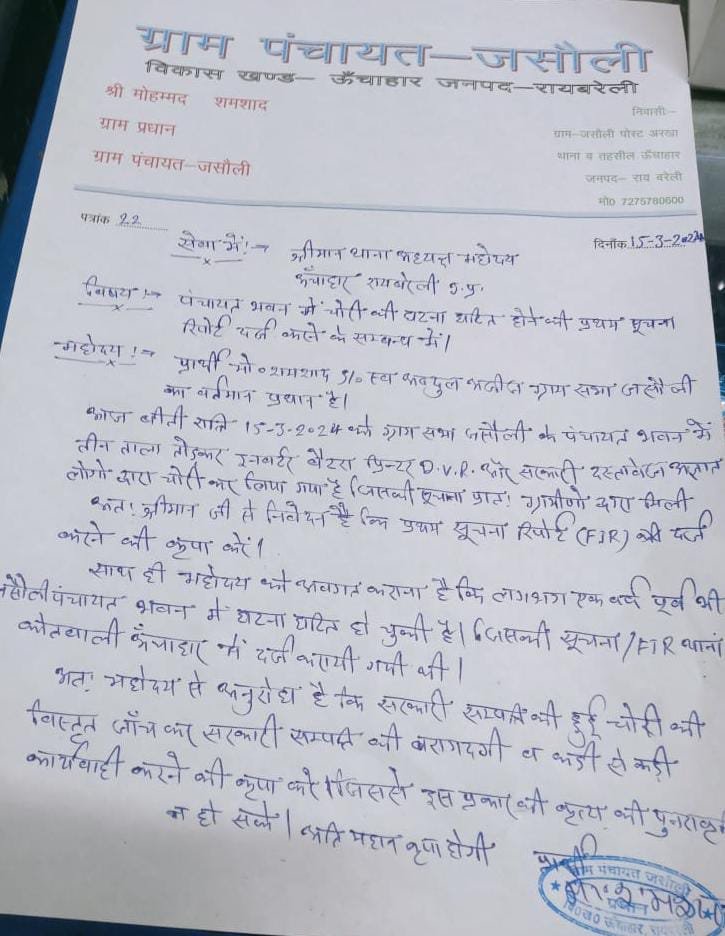 ग्राम पंचायत–जसौली
विकास खण्ड– ऊँचाहार जनपद–रायबरेली
श्री मोहम्मद शमशाद
ग्राम प्रधान
ग्राम पंचायत–जसौली
निवासी:–
ग्राम–जसौली पोस्ट अरखा
थाना व तहसील ऊँचाहार
जनपद– राय बरेली
मो0 7275780600
पत्रांक 22
दिनाँक 15-3-2024
सेवा में!→ श्रीमान थाना अध्यक्ष महोदय
ऊँचाहार रायबरेली उ.प्र.
विषय!→ पंचायत भवन में चोरी की घटना घटित होने की प्रथम सूचना
रिपोर्ट दर्ज करने के सम्बन्ध में।
महोदय!→ प्रार्थी मो०शमशाद S/o स्व अब्दुल अजीज ग्राम सभा जसौली
का वर्तमान प्रधान है।
आज बीती रात्रि 15-3-2024 को ग्राम सभा जसौली के पंचायत भवन में
तीन ताला तोड़कर इनवर्टर बैटरा प्रिन्टर D.V.R. और सरकारी दस्तावेज अज्ञात
लोगो द्वारा चोरी कर लिया गया है जिसकी सूचना प्रातः ग्रामीणो द्वारा मिली
अतः श्रीमान जी से निवेदन है कि प्रथम सूचना रिपोर्ट (FIR) की दर्ज
करने की कृपा करें।
साथ ही महोदय को अवगत कराना है कि लगभग एक वर्ष पूर्व भी
जसौली पंचायत भवन में घटना घटित हो चुकी है। जिसकी सूचना/FIR थाना
कोतवाली ऊँचाहार में दर्ज करायी गयी थी।
अतः महोदय से अनुरोध है कि सरकारी सम्पत्ति की हुई चोरी की
विस्तृत जाँच कर सरकारी सम्पत्ति की बरामदगी व कड़ी से कड़ी
कार्यवाही करने की कृपा करे। जिससे इस प्रकार की कृत्य की पुनरावृ
न हो सके। अति महान कृपा होगी
प्रार्थी
ग्राम पंचायत जसौली
प्रधान
वि0ख0 ऊँचाहार, रायबरेली